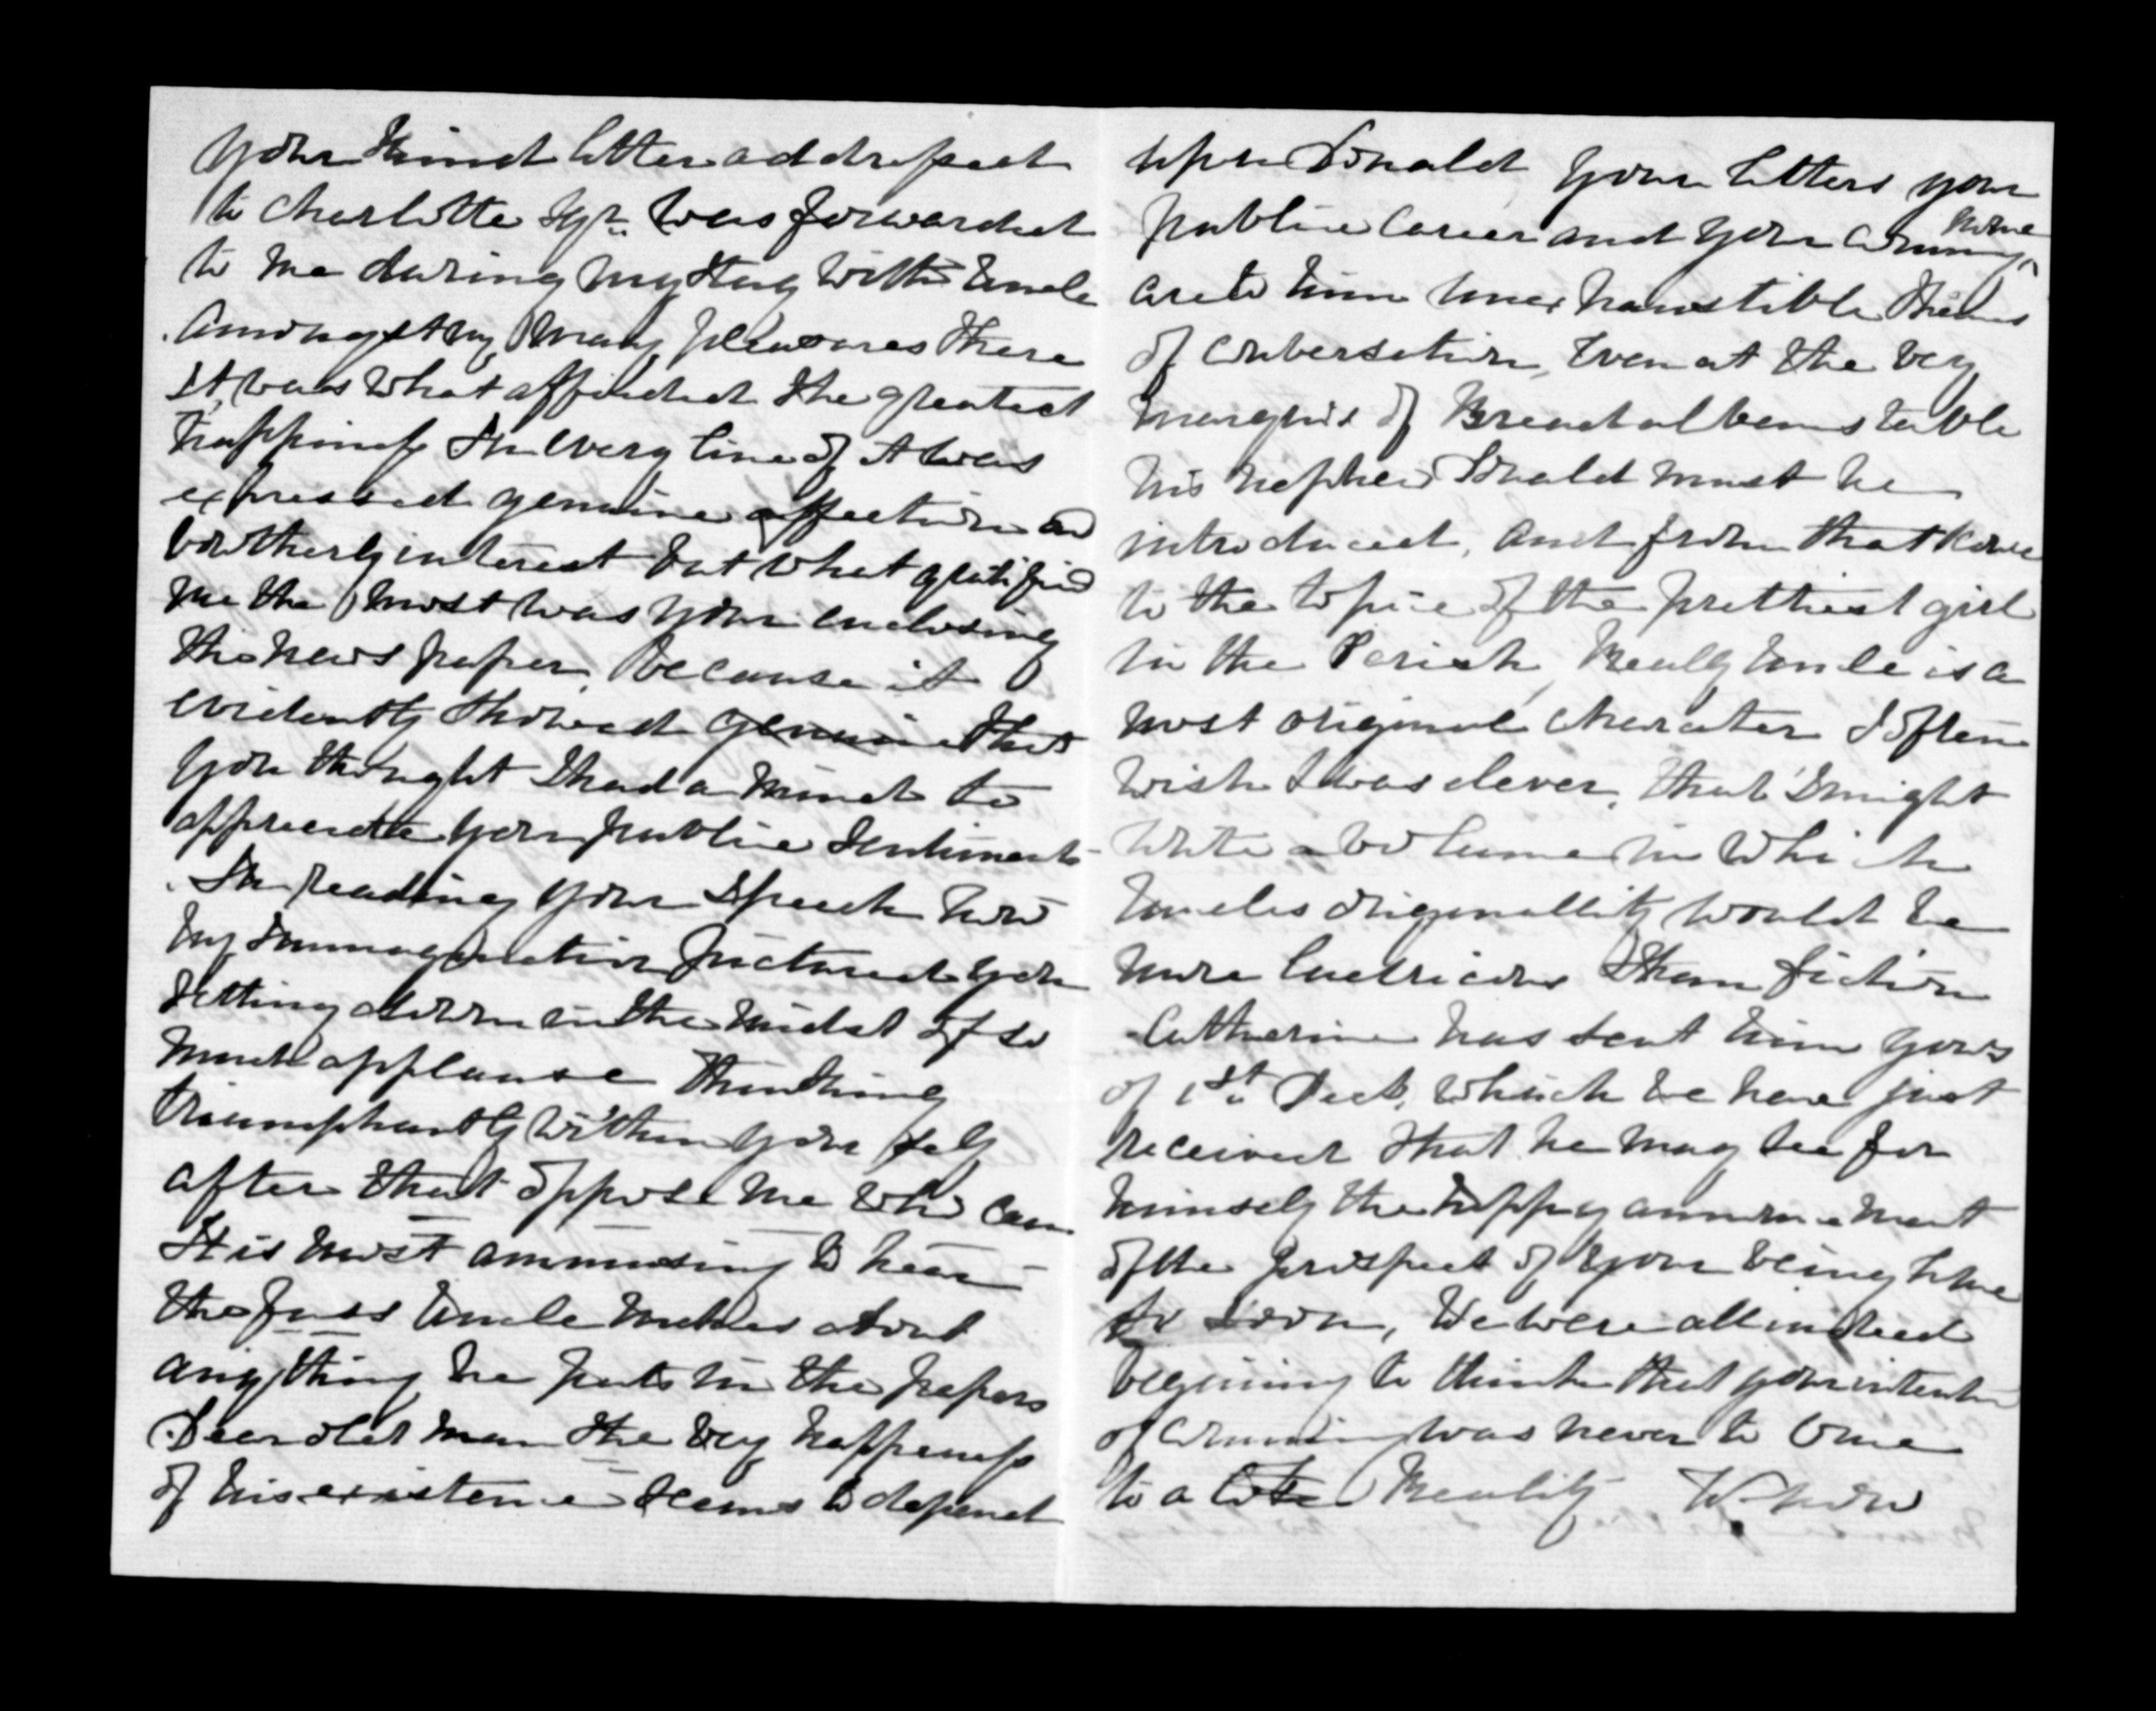 Your kind letter addressed
to Charlotte Sqr. was forwarded
to me during my stay with Uncle
Amongst my many pleasures there
It was what afforded the greatest
happiness In every line of it was
expressed genuine affection and
brotherly interest but what gratified
me the most was your enclosing
the news paper, because it
evidently showed genuine that
you thought I had a mind to
appreciate your public sentiments
In reading your speech how
my immagination pictured you
sitting down in the midst of so
much applause thinking
triumphantly within your self
after that oppose me who can
It is most ammusing to hear
the fuss Uncle makes about
anything he puts in the papers
Dear old man the very happiness
of his existence seems to depend
upon Donald Your letters your
public career and your coming home
are to him unexhaustible themes
of conversation, Even at the very
Marquis of Breadalbanes table
his nephew Donald must be
introduced, and from that
to the topic of the prettiest girl
in the Parish, Really Uncle is a
most original character I often
wish I was clever, that I might
write a volume in which
Uncles originallity would be
more ludricous than fiction
Catherine has sent him yours
of 1st. Decb, which we have just
received that he may see for
himself the happy announcement
of the prospect of your being home
so soon, We were all indeed
begining to think that your intention
of comming was never to come
to a Reality